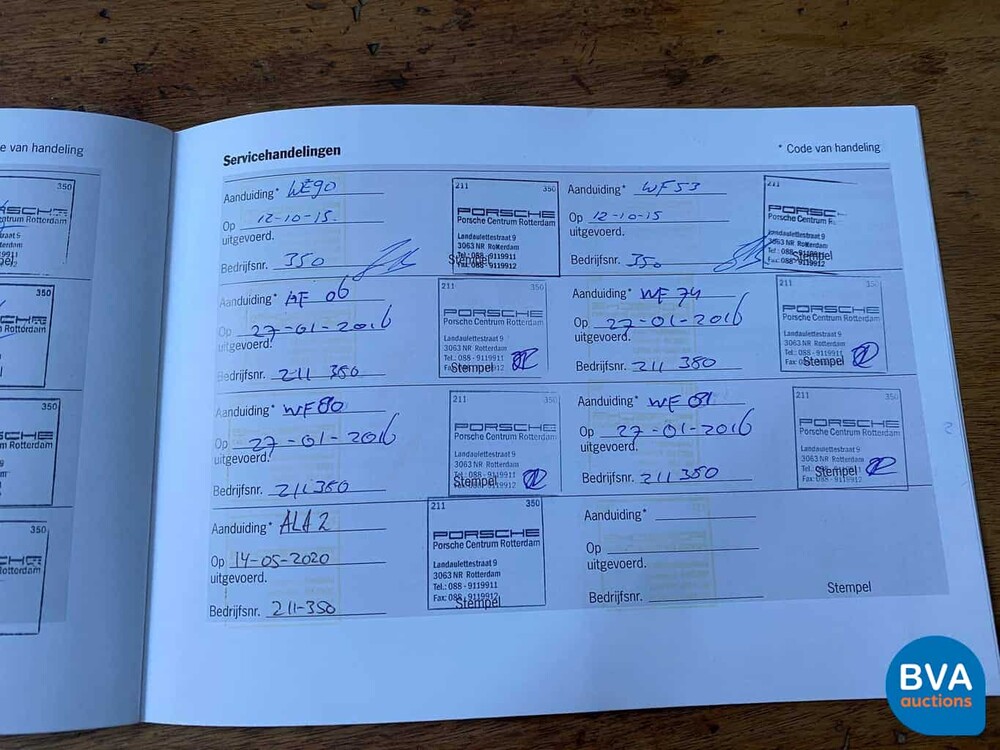 e van handeling
Servicehandelingen
* Code van handeling
350
SCHE
entrum Rotterdam
Aanduiding* WE90
Op 12-10-15.
uitgevoerd.
Bedrijfsnr. 350
211 350
PORSCHE
Porsche Centrum Rotterdam
Landaulettestraat 9
3063 NR Rotterdam
Tel.: 088 - 9119911
Fax: 088 - 9119912
Stempel
Aanduiding* WF53
Op 12-10-15
uitgevoerd.
Bedrijfsnr. 350
211
PORSC
Porsche Centrum R
Landaulettestraat 9
3063 NR Rotterdam
Tel.: 088 - 9119911
Fax: 088 - 9119912
Stempel
350
SCHE
m Rotterdam
Aanduiding* WF 06
Op 27-01-2016
uitgevoerd.
Bedrijfsnr. 211 350
211 350
PORSCHE
Porsche Centrum Rotterdam
Landaulettestraat 9
3063 NR Rotterdam
Tel.: 088 - 9119911
Fax: 088 - 9119912
Stempel
Aanduiding* WF 74
Op 27-01-2016
uitgevoerd.
Bedrijfsnr. 211 350
211
PORSCHE
Porsche Centrum Rotterdam
Landaulettestraat 9
3063 NR Rotterdam
Tel.: 088 - 9119911
Fax: 088 - 9119912
Stempel
350
SCHE
m Rotterdam
Aanduiding* WF80
Op 27-01-2016
uitgevoerd.
Bedrijfsnr. 211 350
211 350
PORSCHE
Porsche Centrum Rotterdam
Landaulettestraat 9
3063 NR Rotterdam
Tel.: 088 - 9119911
Fax: 088 - 9119912
Stempel
Aanduiding* WF 81
Op 27-01-2016
uitgevoerd.
Bedrijfsnr. 211 350
211 350
PORSCHE
Porsche Centrum Rotterdam
Landaulettestraat 9
3063 NR Rotterdam
Tel.: 088 - 9119911
Fax: 088 - 9119912
Stempel
350
CHE
otterdam
Aanduiding* ALA2
Op 14-05-2020
uitgevoerd.
Bedrijfsnr. 211-350
211 350
PORSCHE
Porsche Centrum Rotterdam
Landaulettestraat 9
3063 NR Rotterdam
Tel.: 088 - 9119911
Fax: 088 - 9119912
Stempel
Aanduiding*
Op
uitgevoerd.
Bedrijfsnr.
Stempel
BVA
auctions